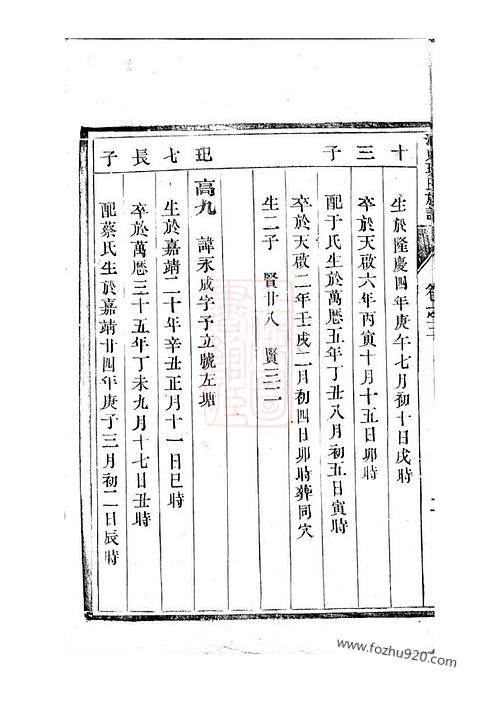 十三子
生於隆慶四年庚午七月初十日戌時
卒於天啟六年丙寅十月十五日卯時
配于氏生於萬曆五年丁丑八月初五日寅時
卒於天啟二年壬戌二月初四日卯時葬同穴
生二子 賢廿八 賢三二
玘七長子
高九 諱永成字予立號左塘
生於嘉靖二十年辛丑正月十一日巳時
卒於萬曆三十五年丁未九月十七日丑時
配蔡氏生於嘉靖廿四年庚子三月初二日辰時
www.fozhu920.com